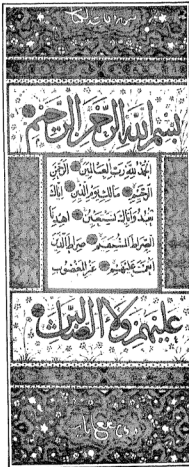 سورة فاتحة الكتاب
بسم الله الرحمن الرحيم
الحمد لله رب العالمين الرحمن
الرحيم مالك يوم الدين اياك
نعبد واياك نستعين اهدنا
الصراط المستقيم صراط الذين
انعمت عليهم غير المغضوب
عليهم ولا الضالين